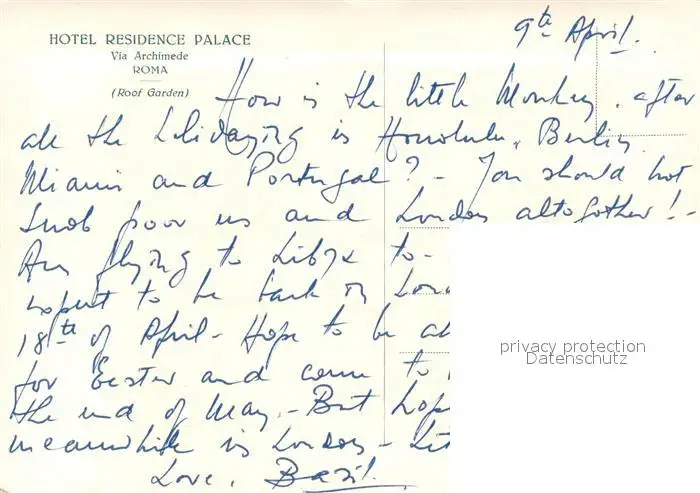 HOTEL RESIDENCE PALACE
Via Archimede
ROMA
(Roof Garden)
9th April.
How is the little Monkey, after
all the holidaying in Honolulu, Berlin,
Miami and Portugal? - You should not
snob poor us and London altogether! -
Am flying to Libya to-
expect to be back in Lon
18th of April - Hope to be ab
for Easter and come to
the end of May. - But hop
meanwhile in London - Let
Love, Basil.
privacy protection
Datenschutz